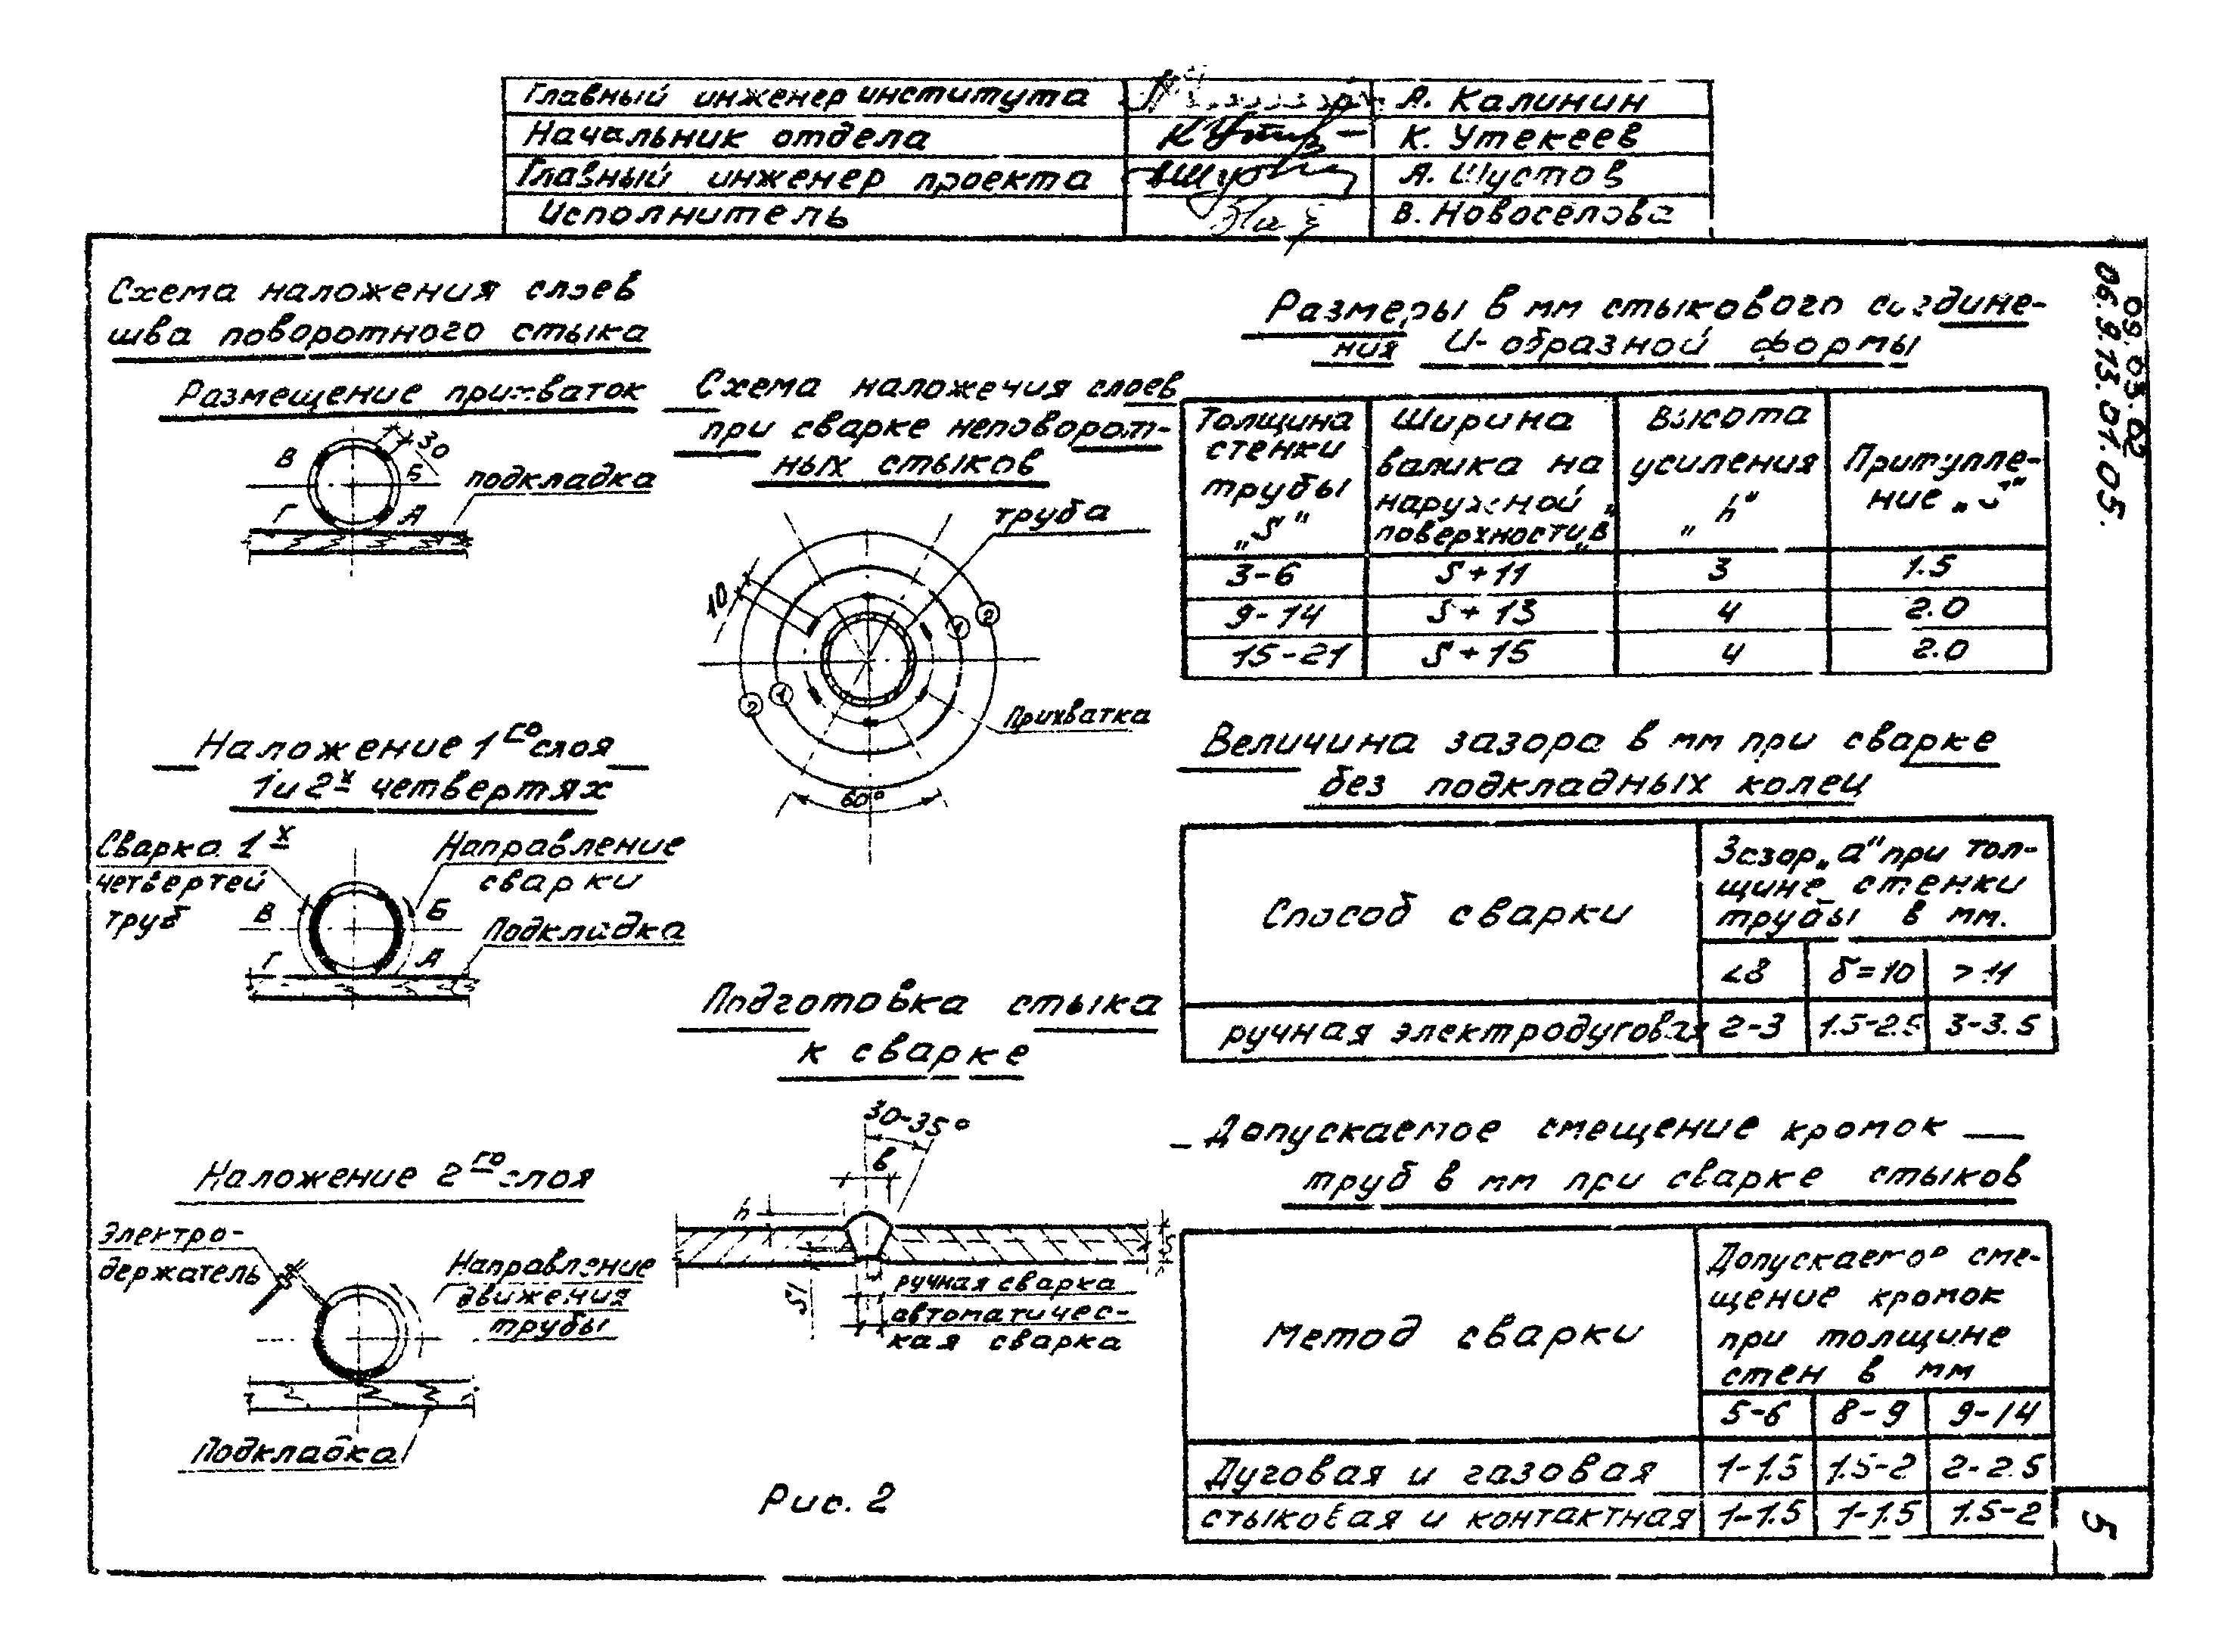 Главный инженер института А. Калинин
Начальник отдела К. Утекеев
Главный инженер проекта А. Шустов
Исполнитель В. Новоселова
09.03.02
06.9.13.01.05.
Схема наложения слоев
шва поворотного стыка
Размещение прихваток
30
В
Б
Г
А
подкладка
Наложение 1го слоя
1 и 2х четвертях
Сварка 1х
четвертей
труб
Направление
сварки
В
Б
Г
А
Подкладка
Наложение 2го слоя
Электро-
держатель
Направление
движения
трубы
Подкладка
Схема наложения слоев
при сварке неповорот-
ных стыков
труба
10
1
2
2
1
Прихватка
60°
Подготовка стыка
к сварке
30-35°
в
h
S
S1
ручная сварка
автоматичес-
кая сварка
Рис. 2
Размеры в мм стыкового соедине-
ния И-образной формы
Толщина
стенки
трубы
„S"
Ширина
валика на
наружной
поверхности „в"
Высота
усиления
„h"
Притупле-
ние „S"
3-6 S+11 3 1.5
9-14 S+13 4 2.0
15-21 S+15 4 2.0
Величина зазора в мм при сварке
без подкладных колец
Способ сварки
Зазор „а" при тол-
щине стенки
трубы в мм.
<8 δ=10 >11
ручная электродуговая 2-3 1.5-2.5 3-3.5
Допускаемое смещение кромок
труб в мм при сварке стыков
Метод сварки
Допускаемое сме-
щение кромок
при толщине
стен в мм
5-6 8-9 9-14
Дуговая и газовая 1-1.5 1.5-2 2-2.5
стыковая и контактная 1-1.5 1-1.5 1.5-2
5